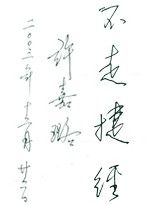 不走捷径
许嘉璐
二〇〇二年十二月廿六日